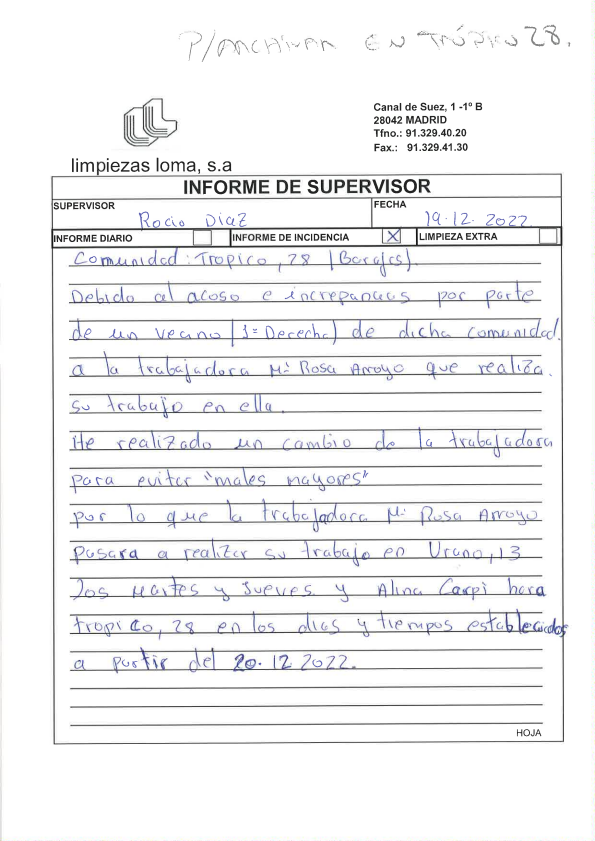 P/ARCHIVAR EN TRÓPICO 28.
Canal de Suez, 1 -1º B
28042 MADRID
Tfno.: 91.329.40.20
Fax.: 91.329.41.30
limpiezas loma, s.a
INFORME DE SUPERVISOR
SUPERVISOR
FECHA
Rocio Diaz
19.12.2022
INFORME DIARIO
INFORME DE INCIDENCIA
X
LIMPIEZA EXTRA
Comunidad: Tropico, 28 (Barajas).
Debido al acoso e increpancias por parte
de un vecino (1º Derecha) de dicha comunidad.
a la trabajadora Mª Rosa Arroyo que realiza.
su trabajo en ella.
He realizado un cambio de la trabajadora
para evitar "males mayores"
por lo que la trabajadora Mª Rosa Arroyo
pasara a realizar su trabajo en Urano, 13
los Martes y Jueves y Alina Carpi hara
tropico, 28 en los dias y tiempos establecidos
a partir del 20.12.2022.
HOJA